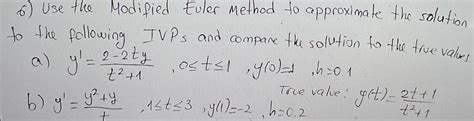 6) Use the Modified Euler Method to approximate the solution
to the following IVPs and compare the solution to the true values.
a) y' = (2-2ty)/(t²+1) , 0≤t≤1 , y(0)=1 , h=0.1
True value: y(t) = (2t+1)/(t²+1)
b) y' = (y²+y)/t , 1≤t≤3 , y(1)=-2 , h=0.2